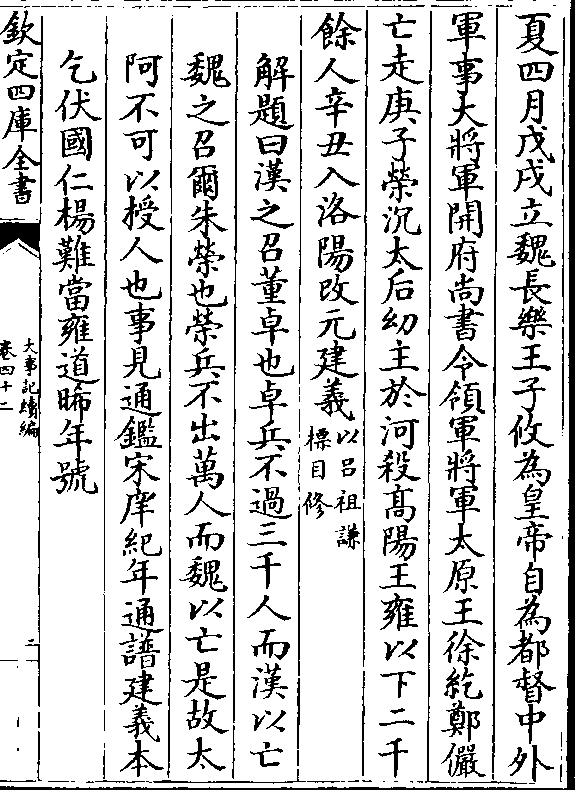 夏四月戊戌立魏長樂王子攸為皇帝自為都督中外
軍事大將軍開府尚書令領軍將軍太原王徐紇鄭儼
亡走庚子榮沉太后幼主於河殺髙陽王雍以下二千
餘人辛丑入洛陽改元建義以呂祖謙
標目修
解題曰漢之召董卓也卓兵不過三千人而漢以亡
魏之召爾朱榮也榮兵不出萬人而魏以亡是故太
阿不可以授人也事見通鑑宋庠紀年通譜建義本
乞伏國仁楊難當雍道晞年號
欽定四庫全書
大事記續編
卷四十二
三